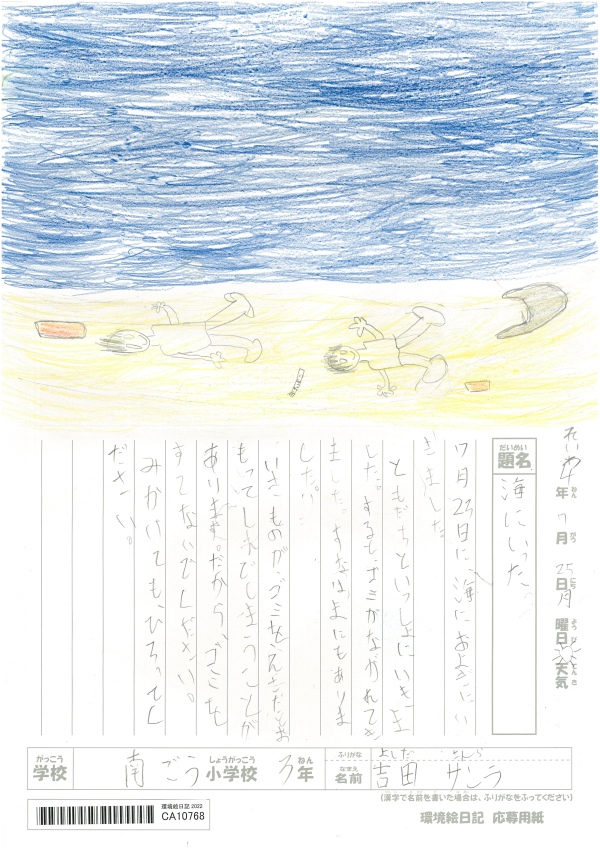 れいわ4年7月25日月曜日天気
題名
だいめい
海にいった。
7月23日に、海におよぎにい
きました。
ともだちといっしょにいきま
した。するとゴミがながれてき
ました。すなはまにもありま
した。
いきものが、ゴミをえさだとお
もってしんでしまうことが
あります。だから、ゴミを
すてないでください。
みかけても、ひろってく
ださい。
がっこう
学校
南ごう小学校
しょうがっこう
3年
ねん
ふりがな
よしだ
なまえ
名前
吉田 サンラ
(漢字で名前を書いた場合は、ふりがなをふってください)
環境絵日記 2022
CA10768
環境絵日記 応募用紙